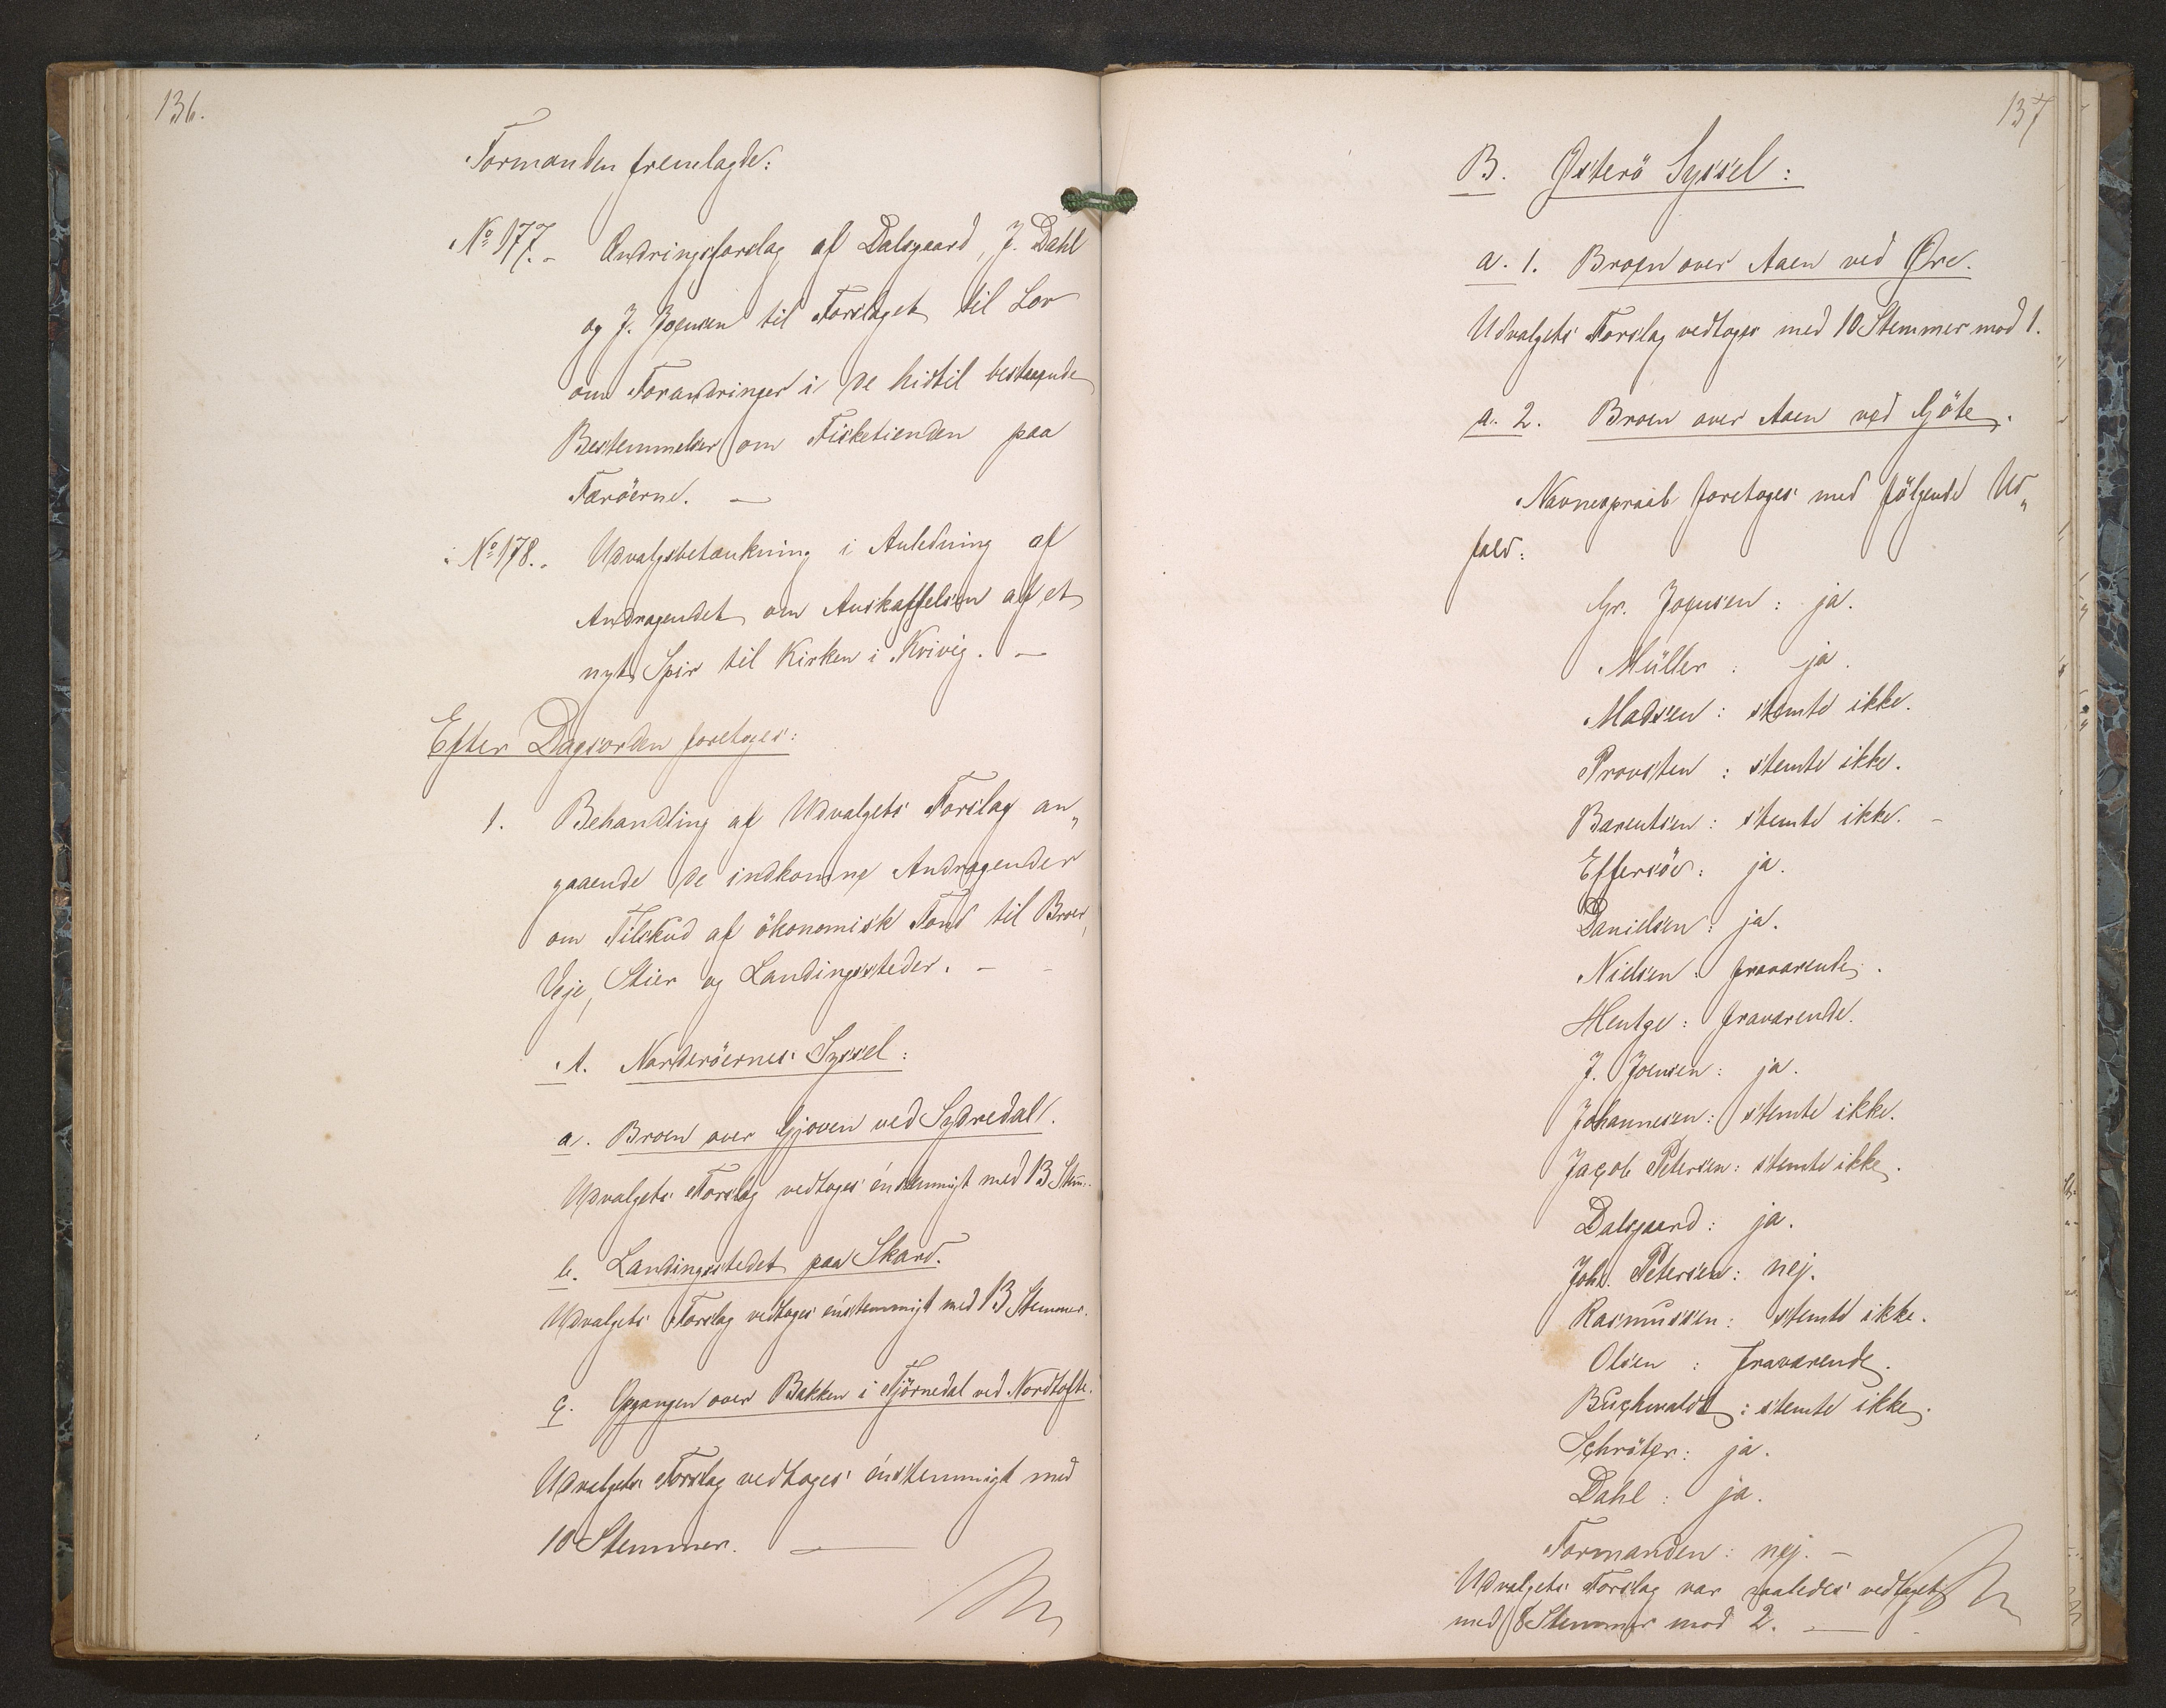 136.
Formanden fremlagde:
No 177. - Ændringsforslag af Dalsgaard, J. Dahl
og J. Joensen til Forslaget til Lov
om Forandringer i de hidtil bestaaende
Bestemmelser om Fisketienden paa
Færöerne. -
No 178. - Udvalgsbetænkning i Anledning af
Andragendet om Anskaffelsen af et
nyt Spir til Kirken i Kvivig. -
Efter Dagsorden foretoges:
1. Behandling af Udvalgets Forslag an„
gaaende de indkomne Andragender
om Tilskud af ökonomisk Fond til Broer,
Veje, Stier og Landingssteder. -
A. Norderöernes Syssel:
a. Broen over Gjoven ved Sydredal.
Udvalgets Forslag vedtoges énstemmigt med 13 Stem.
b. Landingsstedet paa Skard.
Udvalgets Forslag vedtoges énstemmigt med 13 Stemmer.
c. Opgangen over Bakken i Tjörnedal ved Nordtofte.
Udvalgets Forslag vedtoges énstemmigt med
10 Stemmer. -
137
B. Österö Syssel:
a. 1. Broen over Aaen ved Øre.
Udvalgets Forslag vedtoges med 10 Stemmer mod 1.
a. 2. Broen over Aaen ved Göte.
Navneopraab foretoges med fölgende Ud„
fald:
Gr. Joensen: ja.
Müller: ja.
Madsen: stemte ikke.
Provsten: stemte ikke.
Bærentsen: stemte ikke. -
Effersöe: ja.
Danielsen: ja.
Nielsen: fraværende.
Hentze: fraværende.
J. Joensen: ja.
Johannesen: stemte ikke.
Jacob Petersen: stemte ikke.
Dalsgaard: ja.
Joh. Petersen: nej.
Rasmussen: stemte ikke.
Olsen: fraværende.
Buchwaldt: stemte ikke.
Schröter: ja.
Dahl: ja.
Formanden: nej. -
Udvalgets Forslag var saaledes vedtaget
med 8 Stemmer mod 2. -